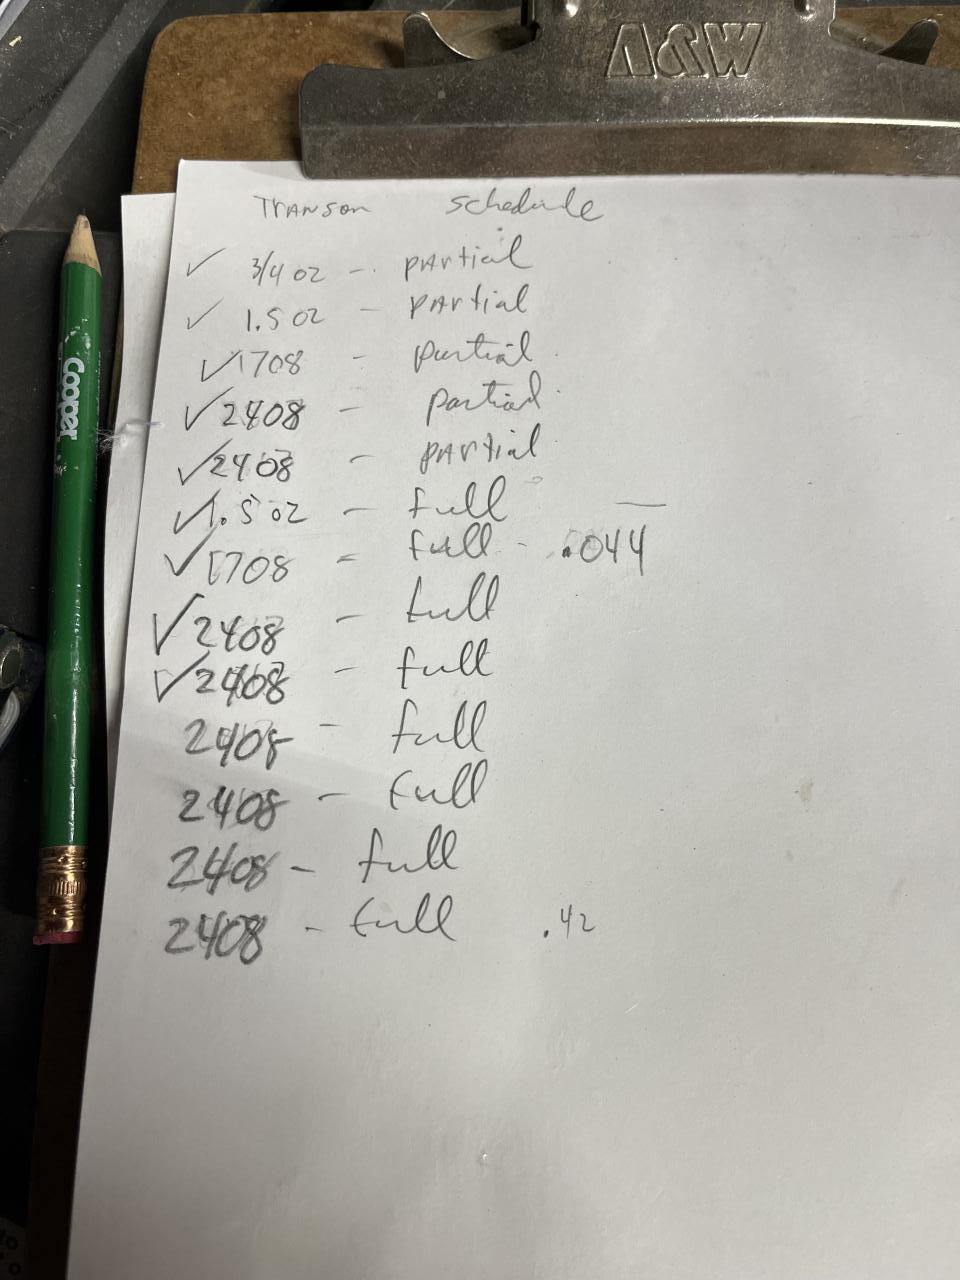 A&W
Transom Schedule
✓ 3/4 oz - partial
✓ 1.5 oz - partial
✓ 1708 - partial
✓ 2408 - partial
✓ 2408 - partial
✓ 1.5 oz - full —
✓ 1708 - full - .044
✓ 2408 - full
✓ 2408 - full
2408 - full
2408 - full
2408 - full
2408 - full .42
Cooper